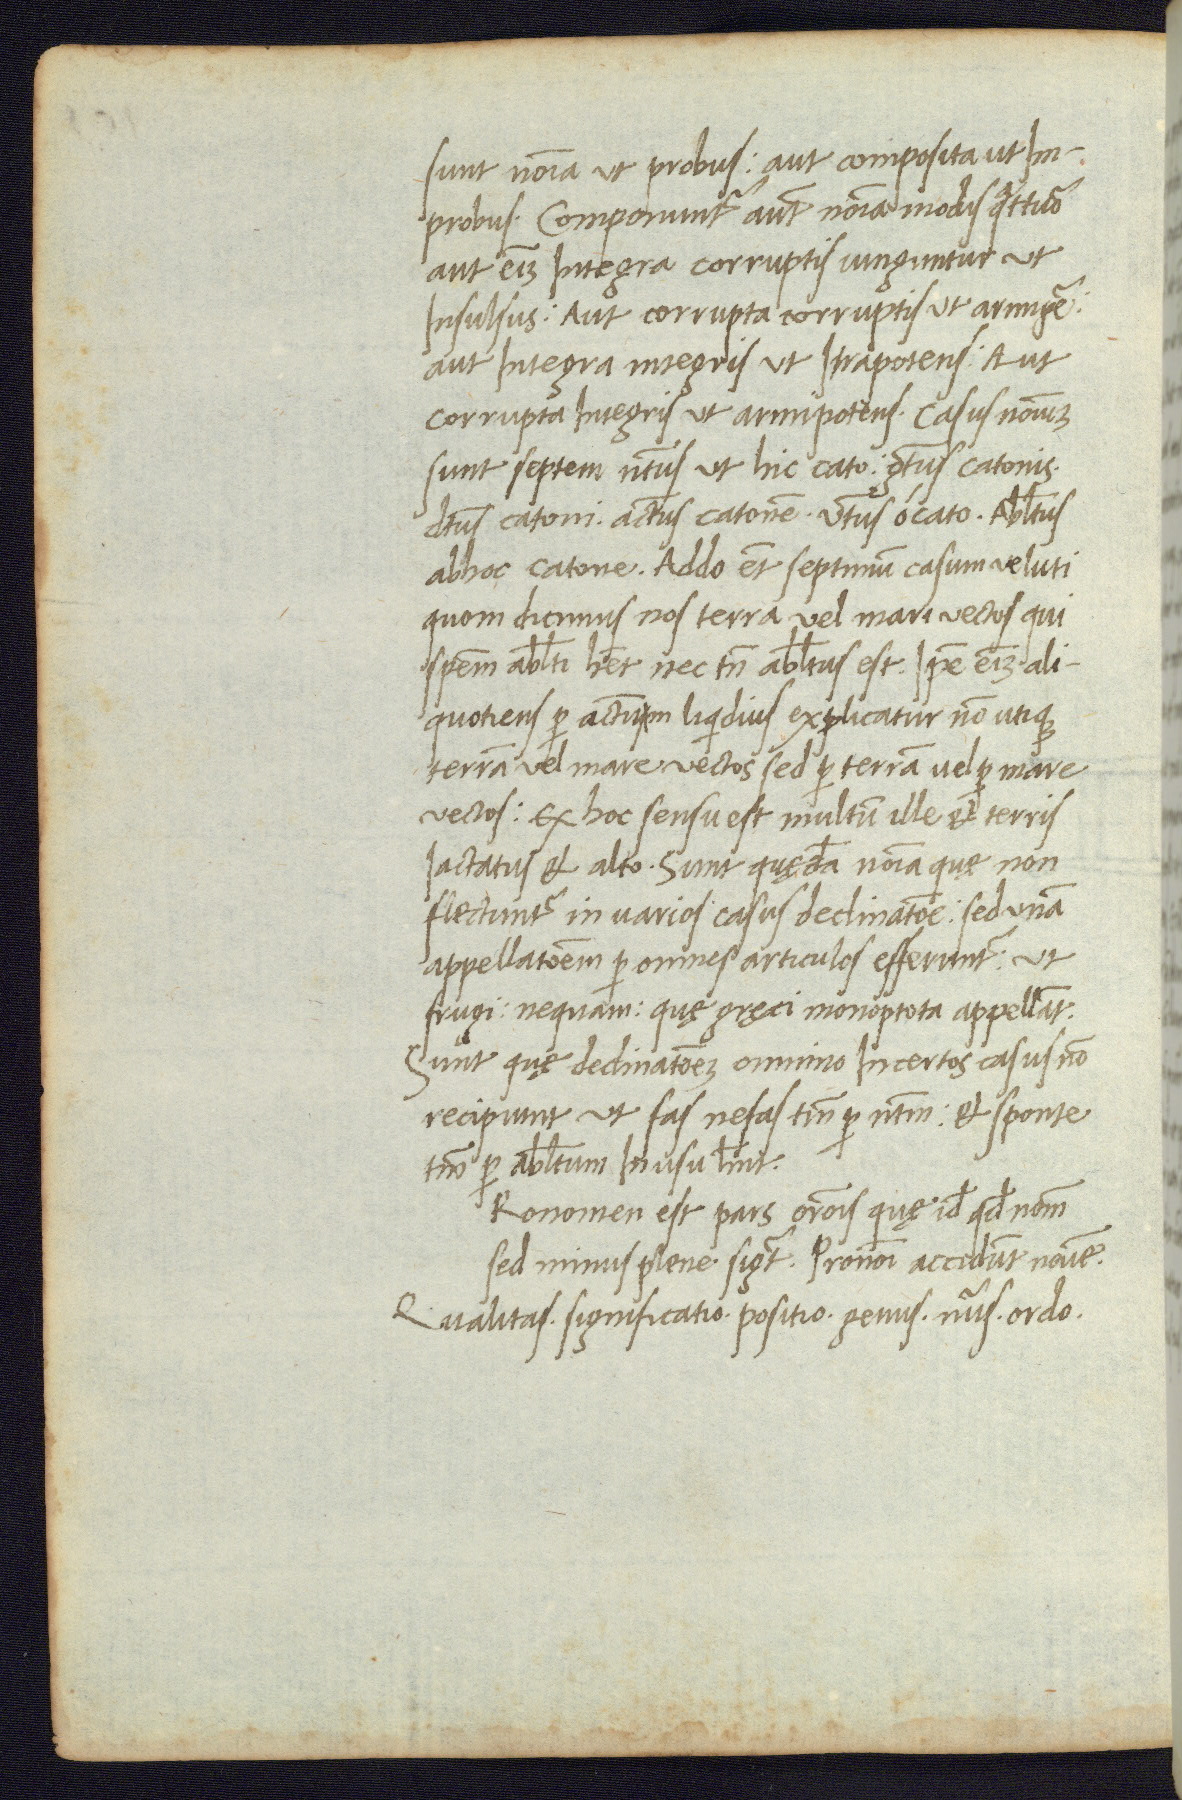 sunt noīa ut probus: aut composita ut Im-
probus. Componunt᷑ aut̄ noīa modis q̄ttuō
aut eīꝫ Integra corruptis iunguntur ut
Insulsus: Aut corrupta corruptis ut armigē:
aut Integra integris ut Itrapotens: Aut
corrupta Integris ut armipotens. Casus noīuꝫ
sunt septem nt̄us ut hic cato: gt̄us catonis.
dt̄us catoni. act̄us catonē. vt̄us ó cato. Abl̄tus
abhoc catone. Addo ēt septimū casum veluti
quom dicimus nos terra vel mari vectos qui
spēm abl̄ti hēt nec tn̄ abl̄tus est. Ip̄e eīꝫ ali-
quotiens ꝑ act̄um liq̇dius explicatur nō utiqꝫ
terrā vel mare vectos sed ꝑ terrā uel ꝑ mare
vectos: ex hoc sensu est multū ille & terris
Iactatus & alto. Sunt quędā noīa quę non
flectunt᷑ in uarios casus declinatōe: sed unā
appellatōem ꝑ omnes articulos efferunt᷑: ut
frugi: nequam: quę gręci monoptota appellāt.
Sunt quę declinatōeꝫ omnino Incertos casus nō
recipiunt ut fas nefas tm̄ ꝑ nt̄m: & sponte
tm̄ō ꝑ abl̄tum In usu hn̄t.
Ronomen est pars orōis quę id̄ qd̄ nom̄
sed minus plene sigt̄. Pronoī accidūt novē.
Qualitas. significatio. positio. genus. nūs. ordo.